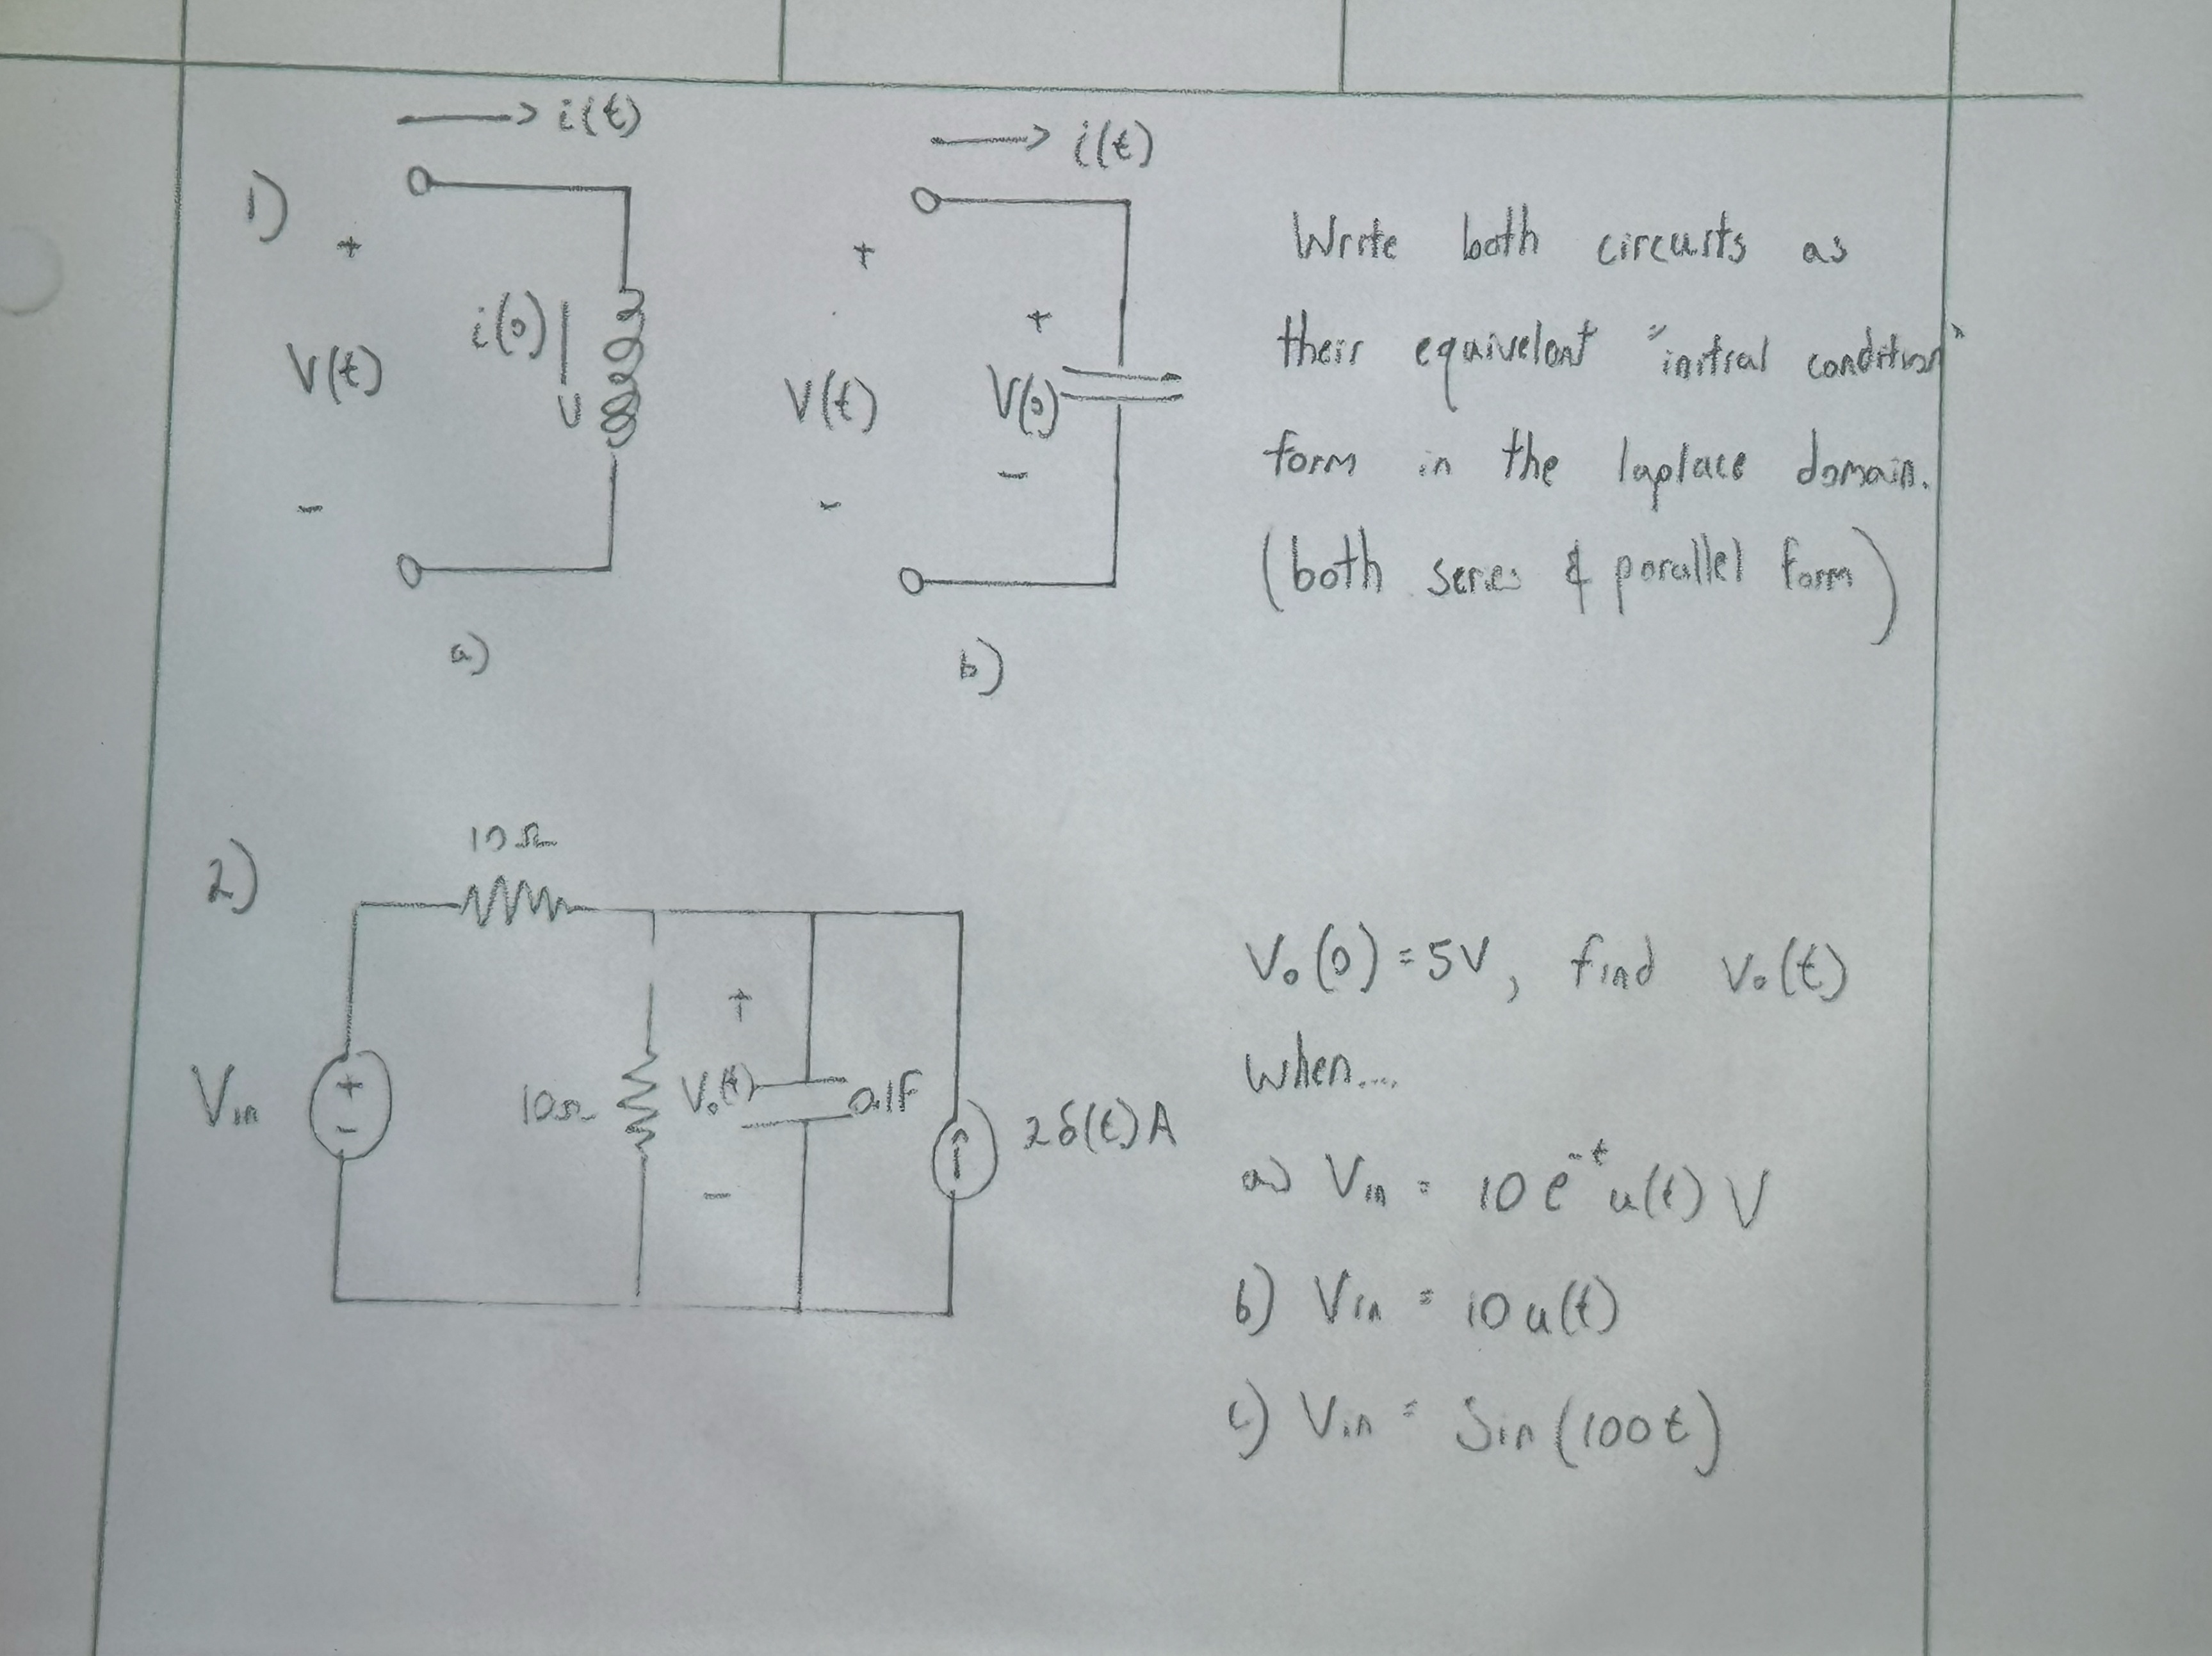 → i(t)
→ i(t)
1)
+
V(t)
-
i(0)
+
V(t)
-
+
V(0)
-
a)
b)
Write both circuits as
their equivelent "initial condition"
form in the laplace domain.
(both series & parallel form)
2)
10Ω
Vin
+
-
10Ω
+
Vo(t)
-
0.1F
2δ(t)A
Vo(0) = 5V, find Vo(t)
when...
a) Vin = 10e^-t u(t) V
b) Vin = 10u(t)
c) Vin = Sin(100t)